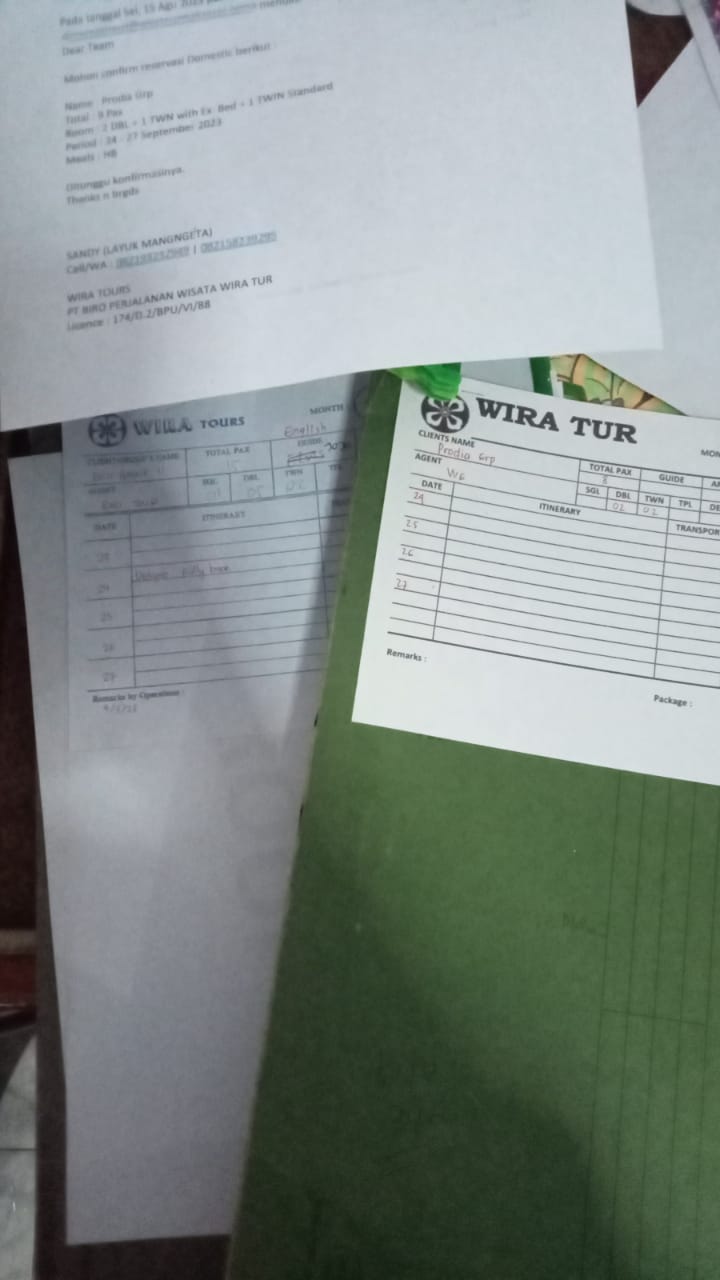 Pada tanggal Sel, 15 Agu 2023
Dear Team
Mohon confirm reservasi Domestic berikut :
Name : Prodia Grp
Total : 9 Pax
Room : 2 DBL + 1 TWN with Ex. Bed + 1 TWIN Standard
Period : 24 - 27 September 2023
Meals : HB
Ditunggu konfirmasinya.
Thanks n brgds
SANDY (LAYUK MANGNGETA)
Cell/WA :
WIRA TOURS
PT BIRO PERJALANAN WISATA WIRA TUR
Licence : 174/D.2/BPU/VI/88
WIRA TOURS
MONTH
English
TOTAL PAX
GUIDE
15
SGL DBL TWN
01 05 02
DATE ITINERARY
23
24
25
26
27
Remarks by Operations :
WIRA TUR
MON
CLIENTS NAME
Prodia Grp
TOTAL PAX GUIDE
AGENT
W6
8
SGL DBL TWN TPL
02 02
DATE ITINERARY TRANSPOR
24
25
26
27
Remarks :
Package :